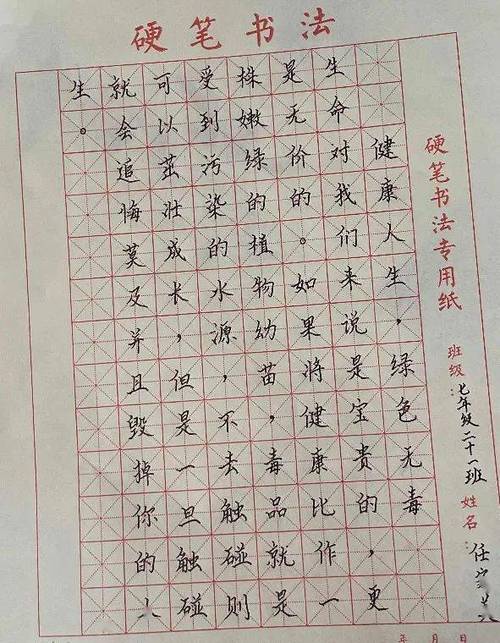 硬笔书法
健康人生，绿色无毒
生命对我们来说，是宝贵的，更
是无价的。如果将健康比作一
株嫩绿的植物幼苗，毒品就是
受到污染的水源，不去触碰则
可以茁壮成长，但是一旦触碰
就会追悔莫及并且毁掉你的人
生。
硬笔书法专用纸
班级：七年级二十一班
姓名：任
年 月 日